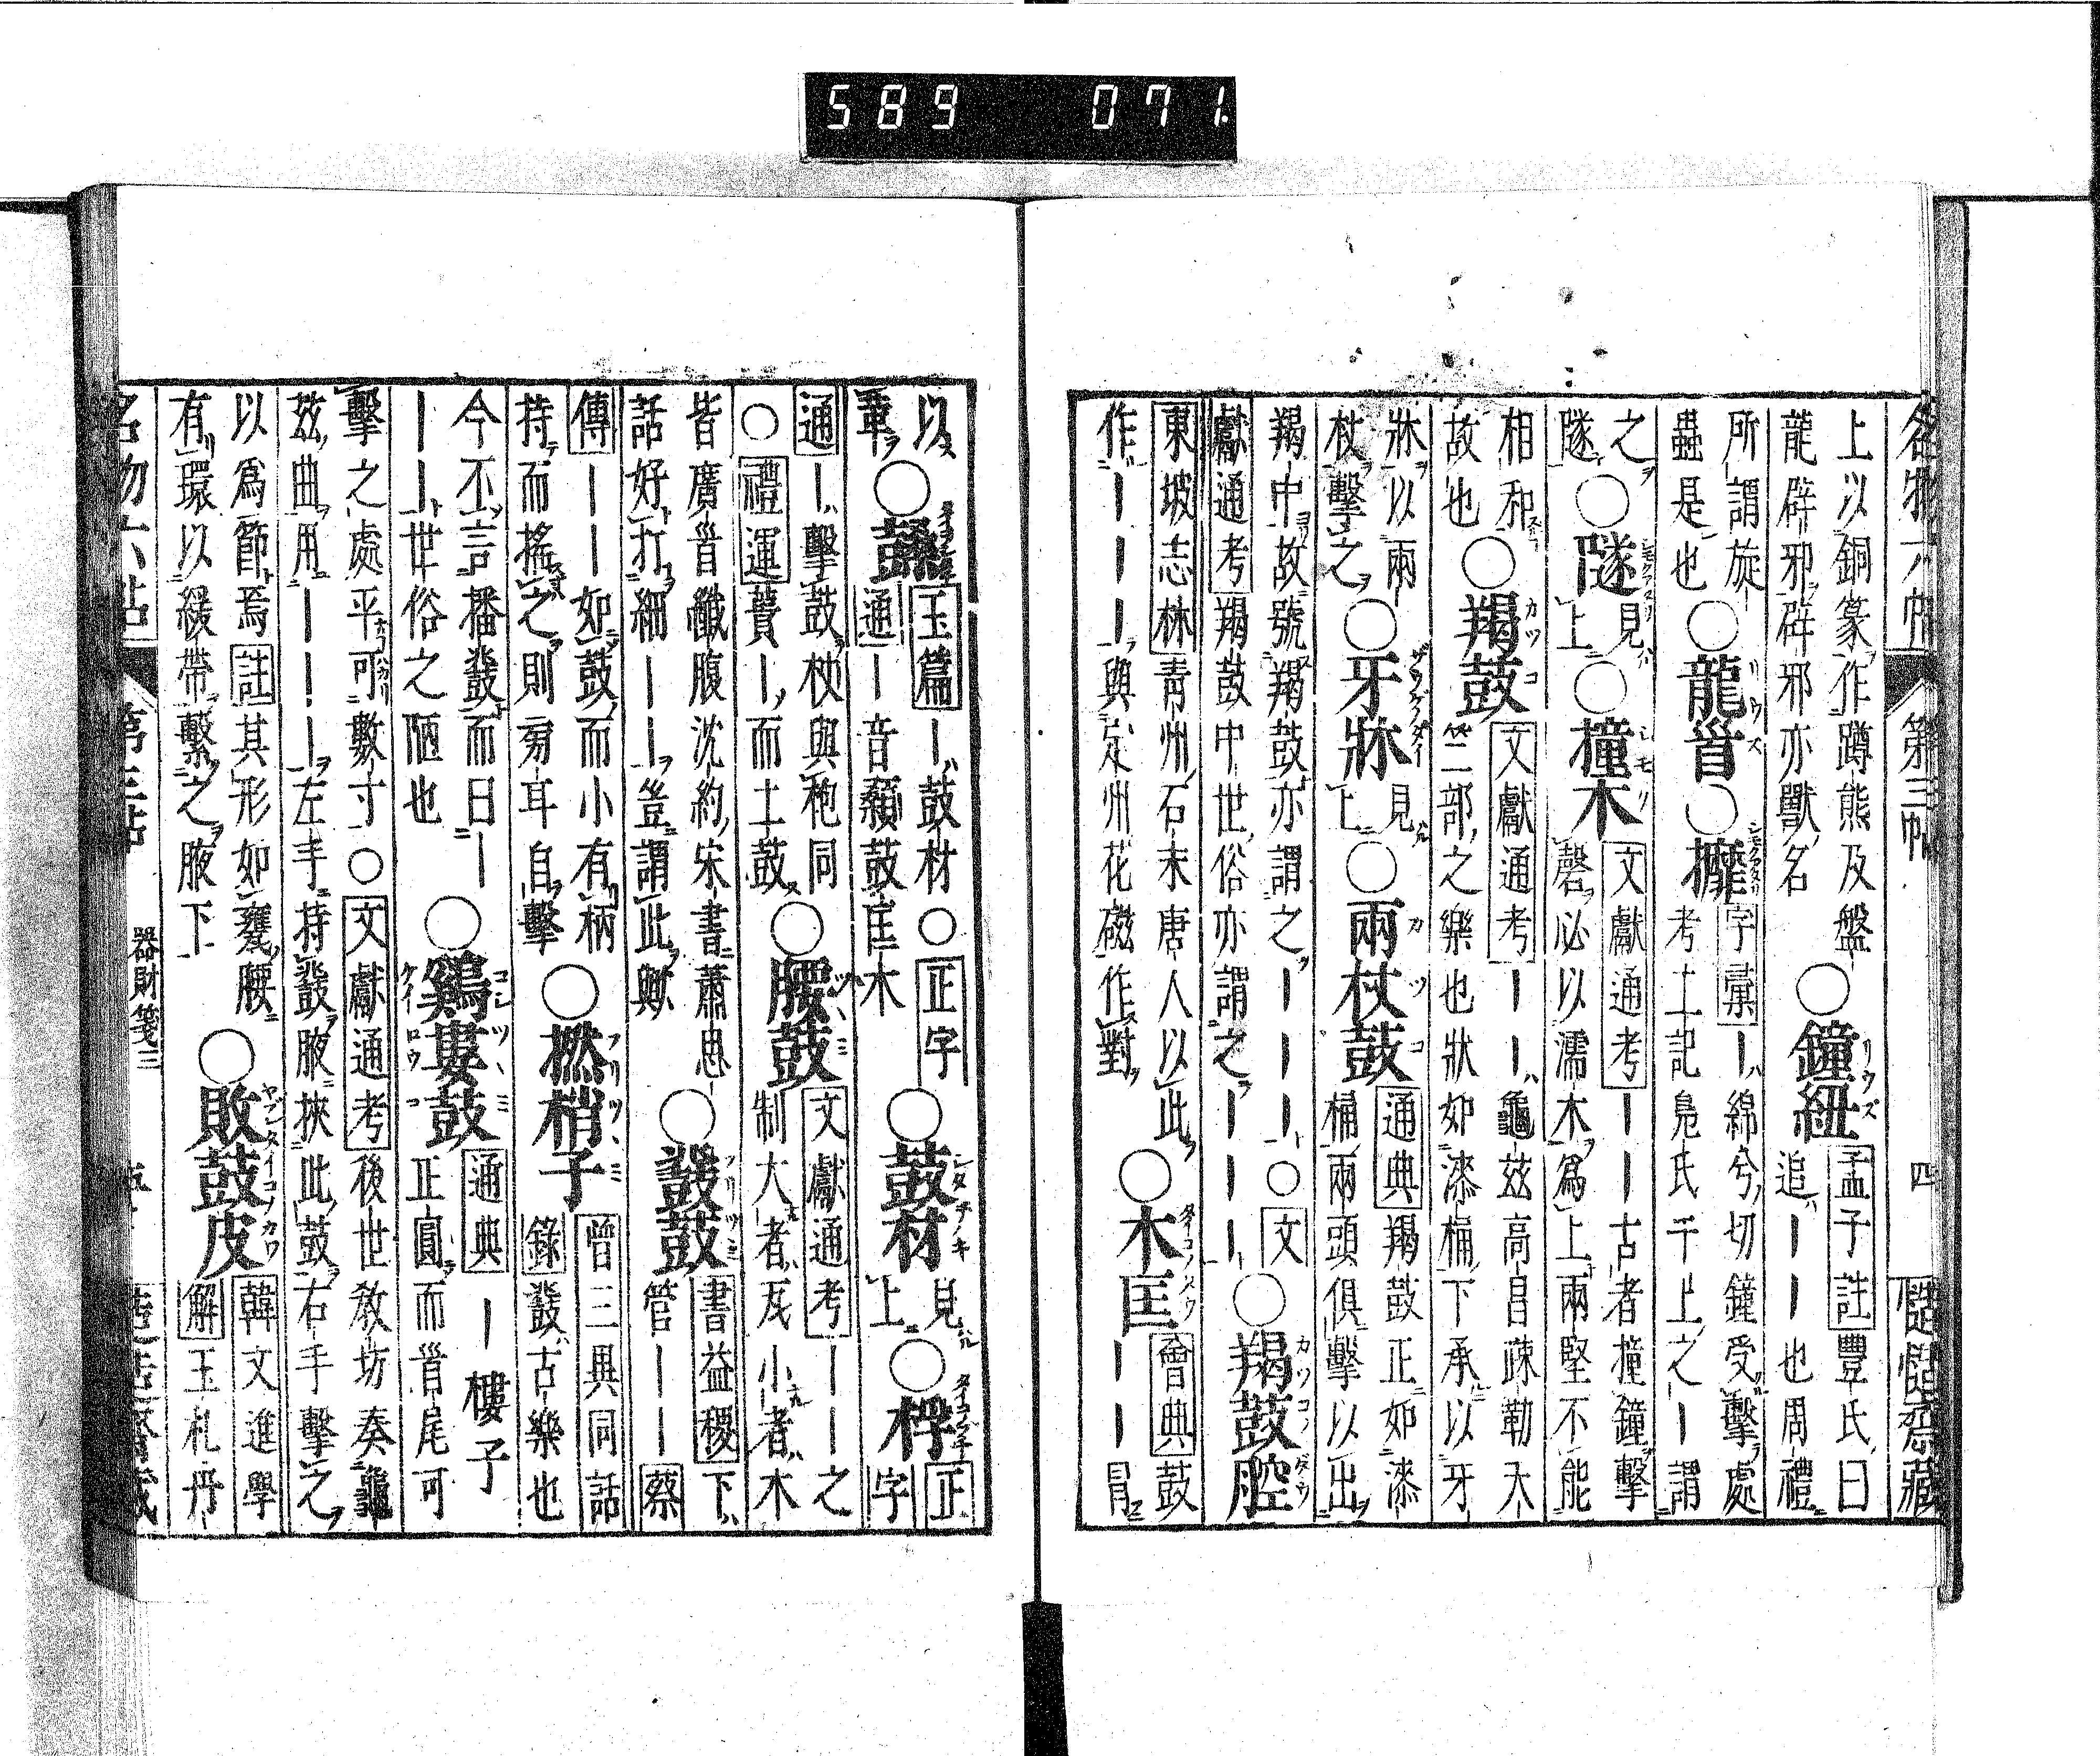 名物六帖 第三帖 四
上以銅篆作蹲熊及盤
龍辟邪辟邪亦獸名
○鐘紐 リウズ
孟子註豐氏曰
追｜｜也周禮
所謂旋
蟲是也
○龍首 リウズ
字彙｜綿兮切鐘受擊處
考工記鳧氏于上之｜謂
之
隧
○隧
見
上
○撞木 シモク
文獻通考｜｜古者撞鐘擊
磬必以濡木爲上兩堅不能
相和
故也
○羯鼓 カツコ
文獻通考｜｜龜茲高昌疎勒天
竺部之樂也狀如漆桶下承以牙
牀以兩
杖擊之
○牙牀
見
上
○兩杖鼓 カツコ
通典羯鼓正如漆
桶兩頭俱擊以出
羯中故號羯鼓亦謂之｜｜｜○文
獻通考羯鼓中世俗亦謂之｜｜｜
○羯鼓腔
東坡志林青州石末唐人以此
作｜｜｜與定州花磁作對
○木匡
會典鼓
｜｜冒
以
革
玉篇｜鼓材○正字
通｜音顙鼓匡木
○鼓材
見
上
○桴
正
字
通｜擊鼓杖與枹同
○禮運蕢｜而土鼓
○腰鼓 ツヽミ
文獻通考｜｜之
制大者瓦小者木
皆廣首纖腹沈約宋書蕭思
話好打細｜｜豈謂此歟
○鼗鼓 フリツヽミ
書益稷下
管｜｜蔡
傳｜｜如鼓而小有柄
持而搖之則旁耳自擊
○撚梢子 フリツヽミ
曾三異同話
錄鼗古樂也
今不言播鼗而曰｜
｜｜世俗之陋也
○鷄婁鼓 ケイロウコ
通典｜樓子
正圓而首尾可
擊之處平可數寸○文獻通考後世教坊奏龜
茲曲用｜｜｜左手持鼗腋挾此鼓右手擊之
以爲節焉註其形如甕腰
有環以綬帶繫之腋下
○敗鼓皮
韓文進學
解玉札丹
名物六帖 第三帖 器財箋三
589 071